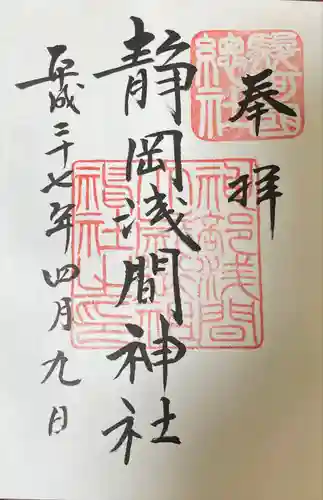 奉拝
駿河総社
静岡浅間神社
平成二十七年四月九日